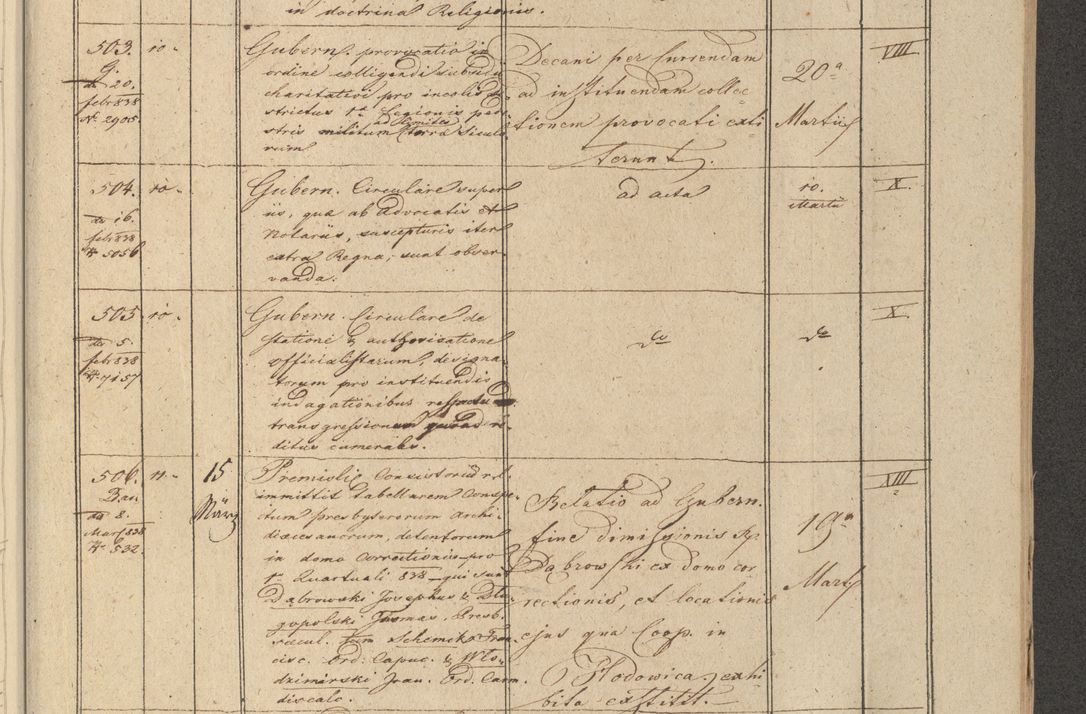 in doctrina Religionis.
503. 10-
G.
dto 20.
febr 838
N. 2905
Gubern. provocatio in
ordine colligendi subsidii
charitativi pro incolis di-
strictus 1æ Legionis pede-
stris militum ad limites terræ Siculo-
rum
Decani per Currendam
ad instituendam collec
tionem provocati exti
terunt.
20a
Martii
VIII
504. 10-
dto 16.
febr 838
N. 5056
Gubern. Circulare super
iis, quæ ab Advocatis et
Notariis, suscepturis iter
extra Regna, sunt obser-
vanda.
ad acta
10.
Martii
X.
505 10-
dto 5.
febr 838
N. 7157
Gubern. Circulare de
statione & authorisatione
officialistarum, designa-
torum pro instituendis
indagationibus respectu
transgressionum quoad re-
ditus camerales.
do
do
X.
506. 11-
dto 8.
Mart 838
N. 532.
15
März
Premislie Consistorium r.l.
immittit tabellarem Conspe-
ctum presbyterorum Archi
diœcesanorum, detentorum
in domo Correctionis pro
1o Quartuali 838 - qui sunt
Dąbrowski Josephus & Dłu-
gopolski Thomas, Presb.
sæcul. tum Schemetz Fran-
cisc. Ord. Capuc. & Wło-
dzimirski Joan. Ord. Carm.
discalc.
Relatio ad Gubern.
fine dimissionis Rp.
Dąbrowski ex domo cor
rectionis, et locationis
ejus qua Coop. in
Hodowica, exhi
bita exstitit.
19a
Mart
XIII